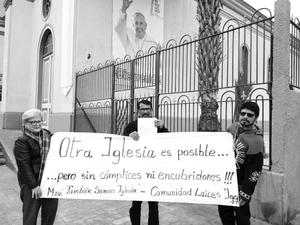 Otra Iglesia es posible...
...pero sin cómplices ni encubridores !!!
Mov. También Somos Iglesia - Comunidad Laicos